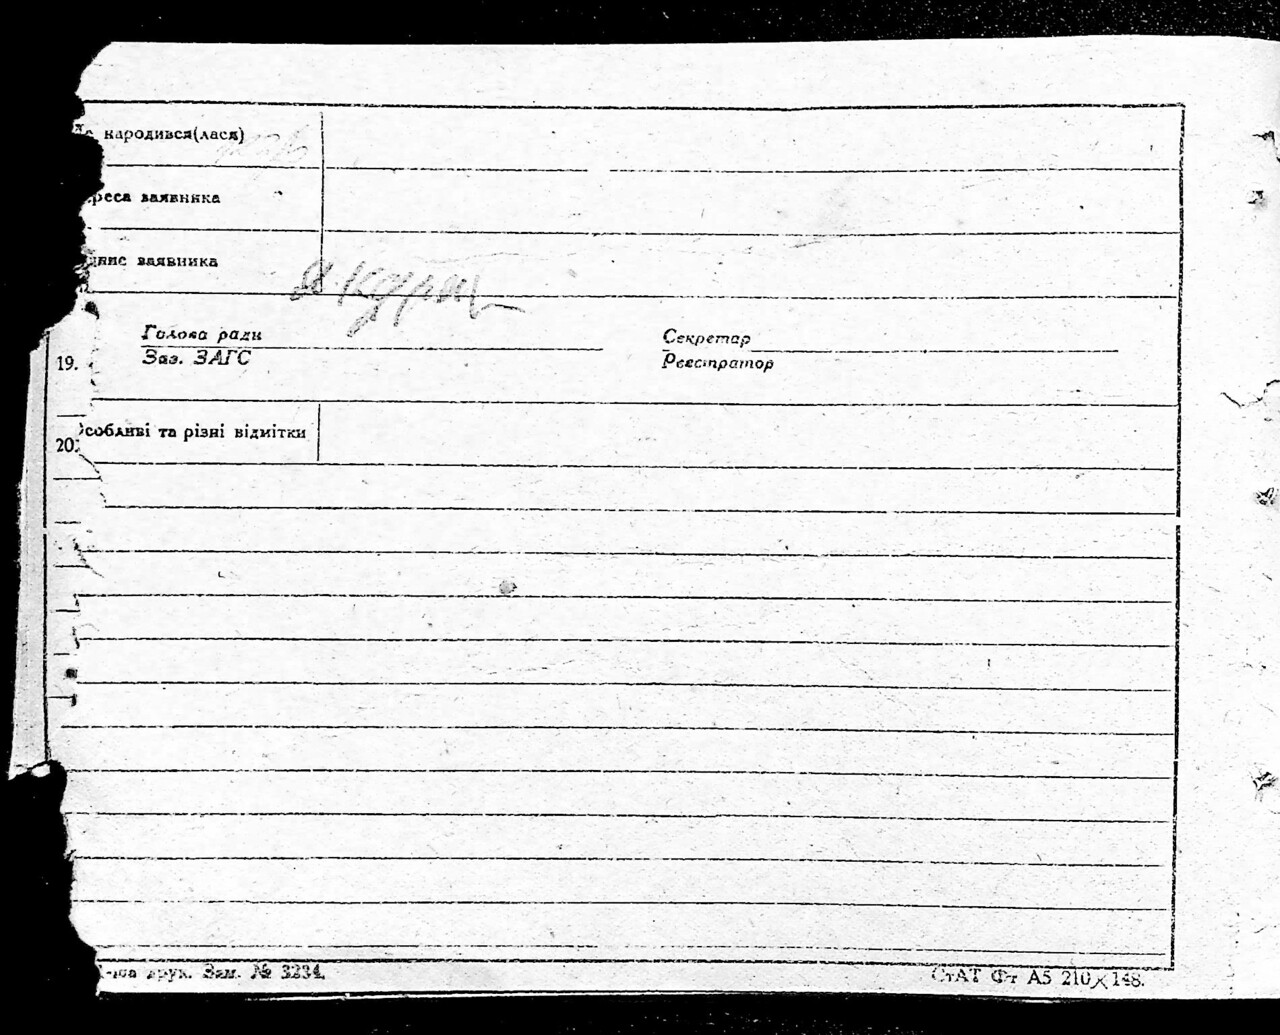 народився(лася)
реса заявника
пис заявника
Голова ради
Секретар
Зав. ЗАГС
Реєстратор
19.
собливі та різні відмітки
20.
друк. Зам. № 3234.
СтАТ Фт А5 210×148.